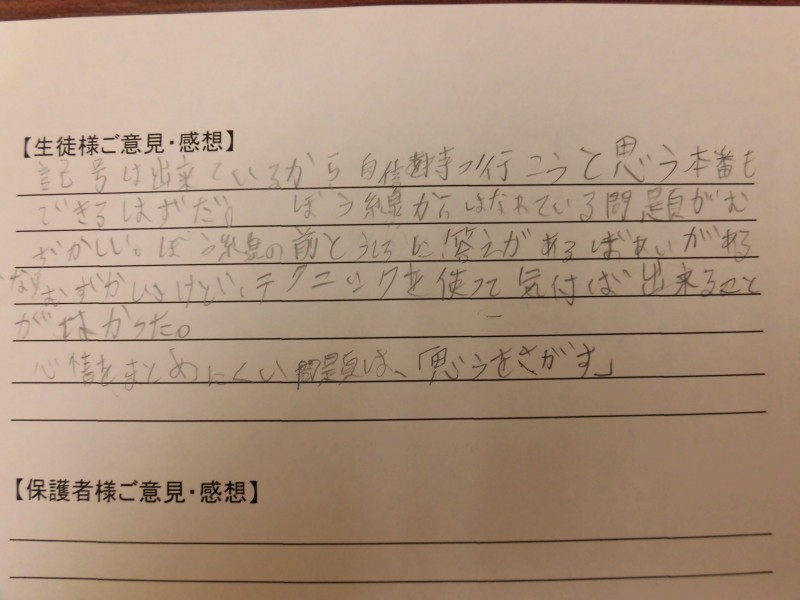 【生徒様ご意見・感想】
記号は出来ているから自信持って行こうと思う本番も
できるはずだ。 ぼう線からはなれている問題がむ
ずかしい。ぼう線の前とうしろに答えがあるばあいがある
むずかしいけど、テクニックを使って気付ば出来ること
が分かった。
心情をまとめにくい問題は、「思うをさがす」
【保護者様ご意見・感想】